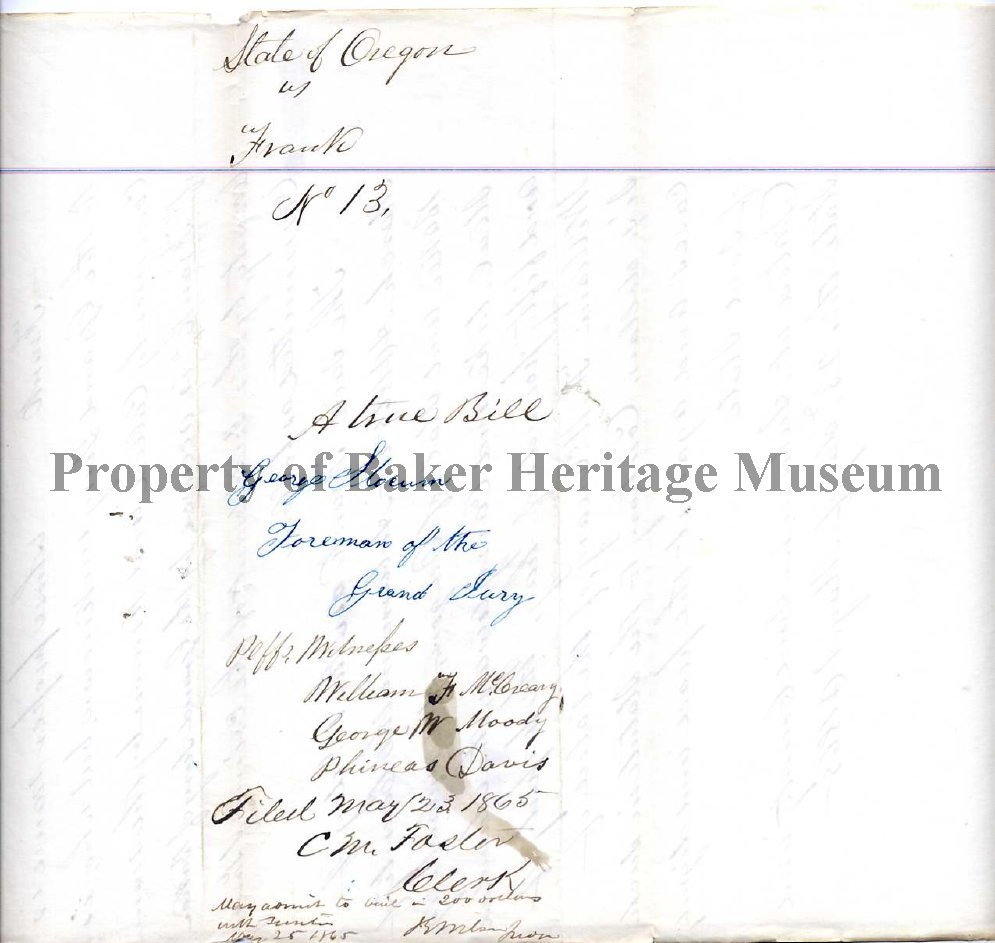 State of Oregon
vs
Frank
No 13,
A true Bill
Property of Baker Heritage Museum
George Slocum
Foreman of the
Grand Jury
Plffs Witnesses
William F McCreary
George W Moody
Phineas Davis
Filed May 23, 1865
C M. Foster
Clerk
May admit to bail in 200 dollars
with
May 25 1865